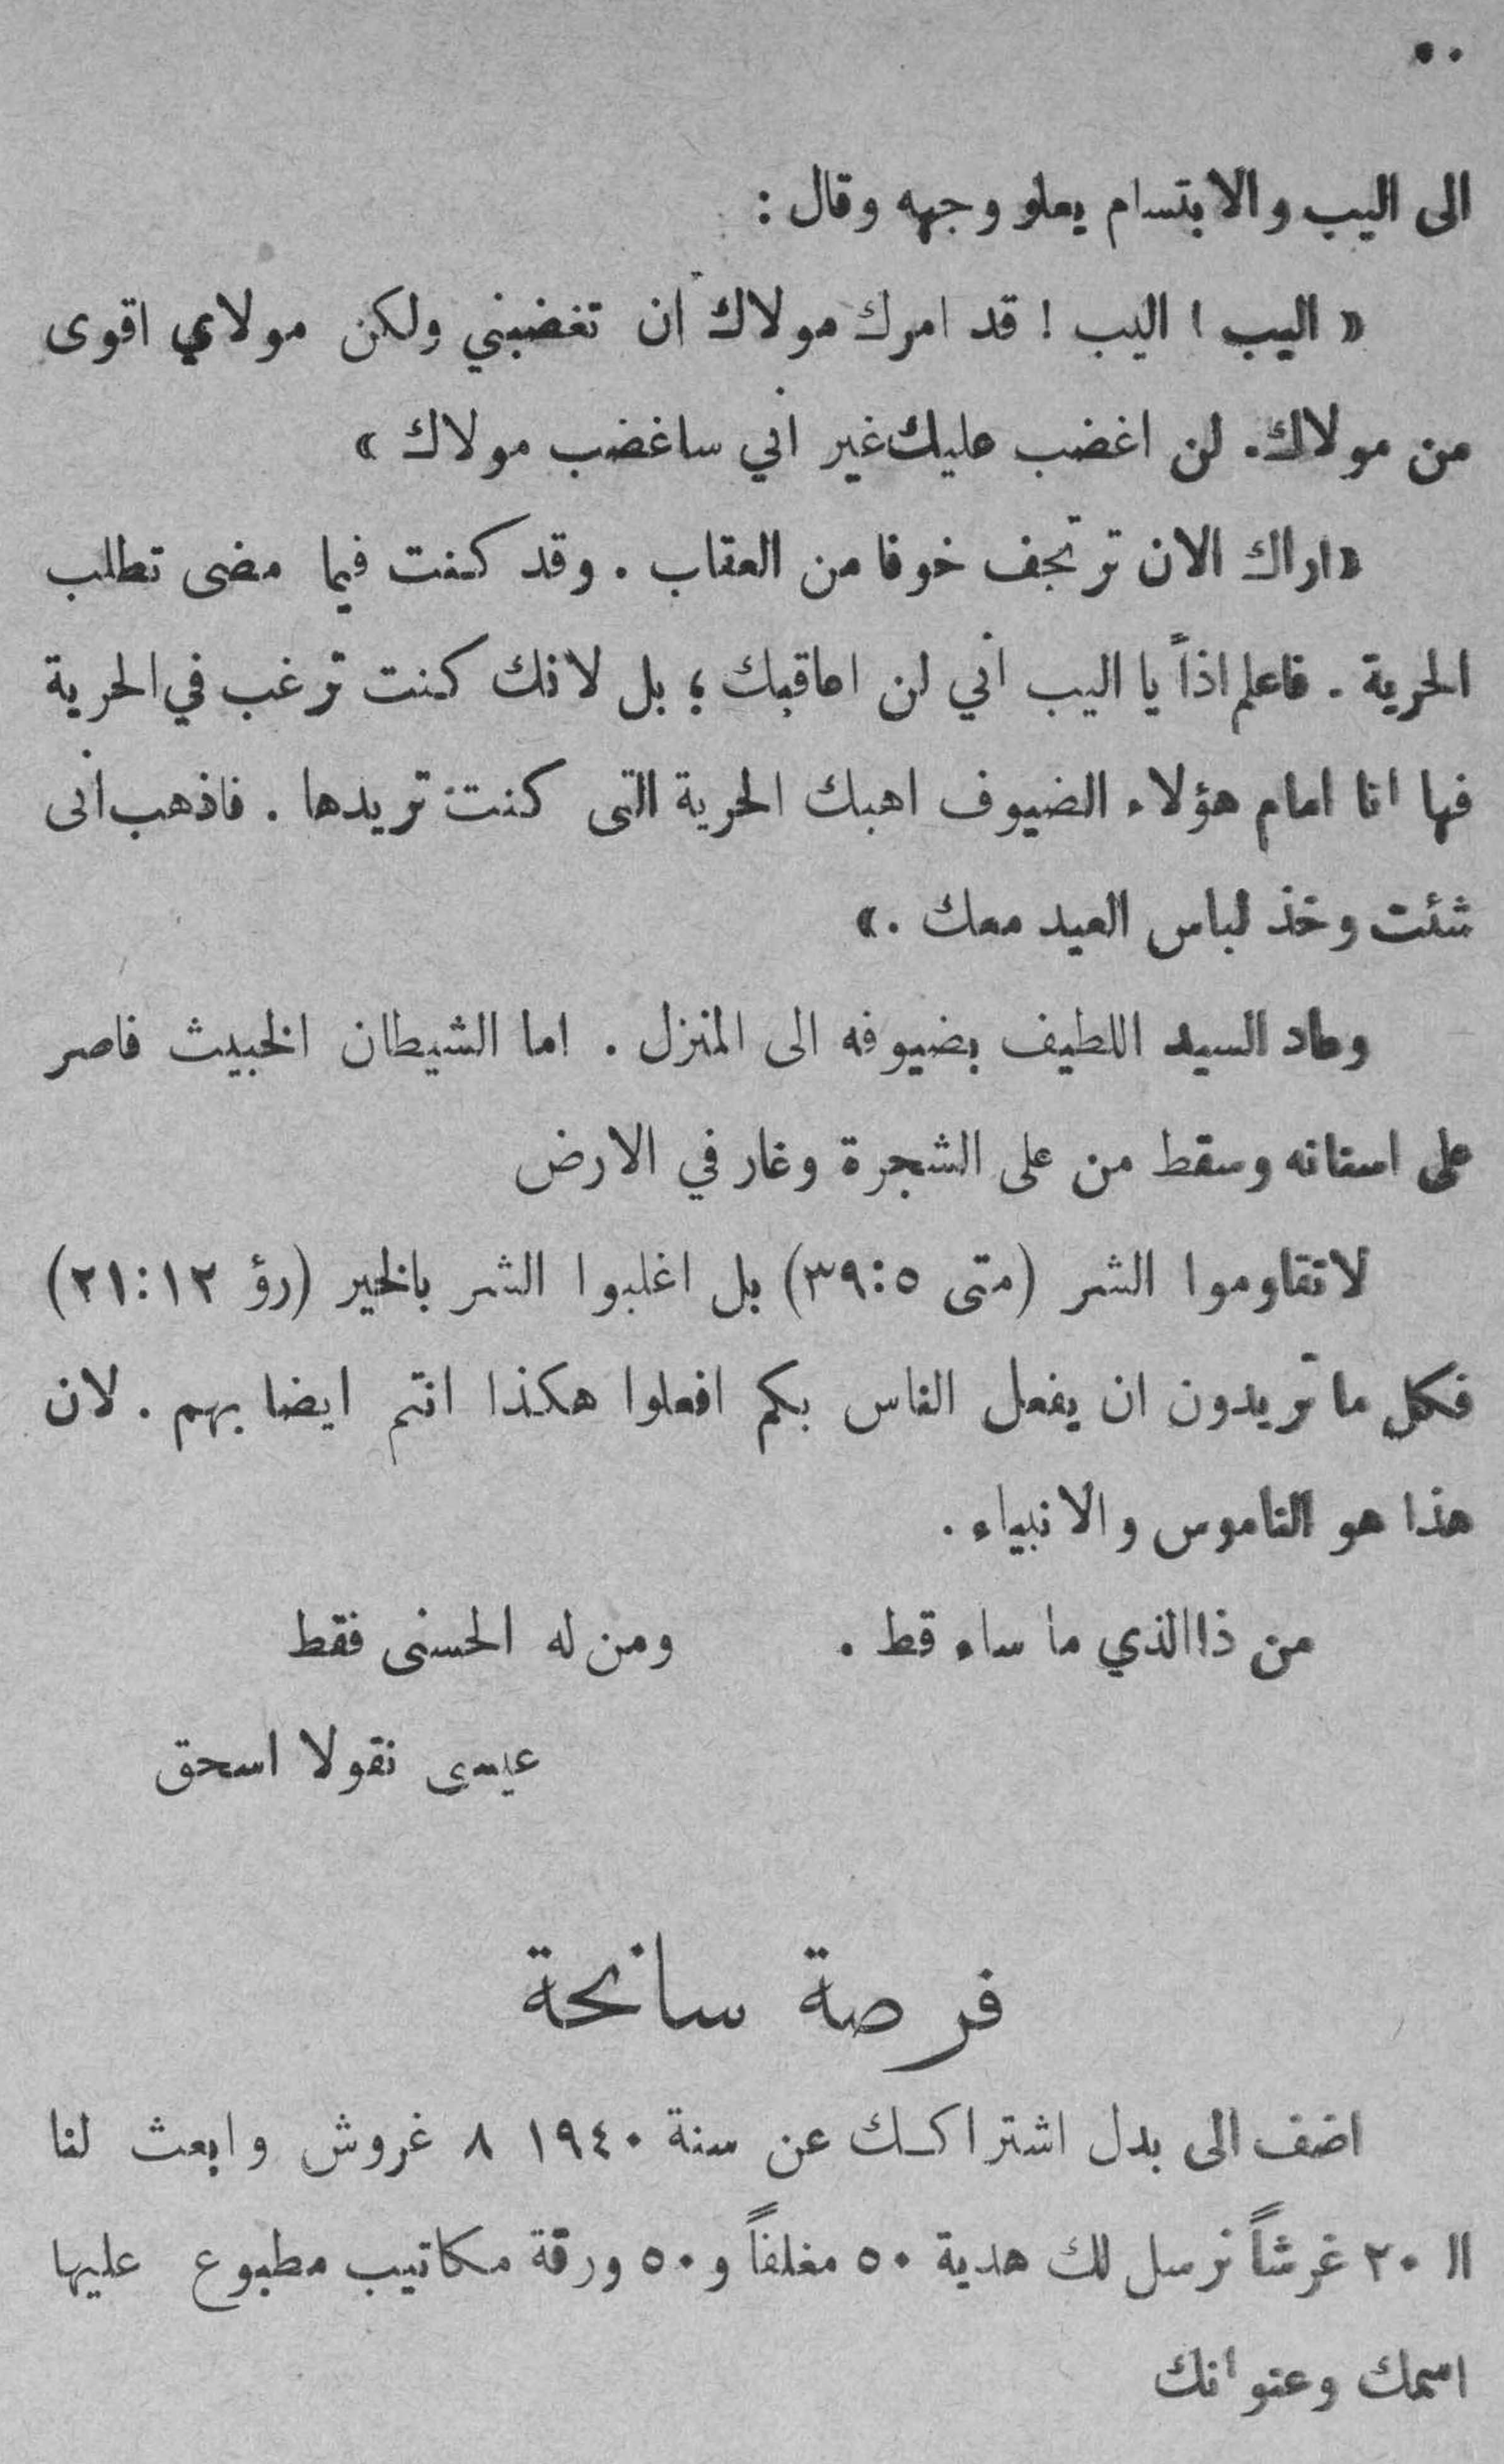 الى اليب والابتسام يعلو وجهه وقال :
« اليب ! اليب ! قد امرك مولاك ان تغضبني ولكن مولاي اقوى
من مولاك. لن اغضب عليك غير اني ساغضب مولاك »
«اراك الان ترتجف خوفا من العقاب . وقد كنت فيما مضى تطلب
الحرية . فاعلم اذاً يا اليب اني لن اعاقبك ؛ بل لانك كنت ترغب في الحرية
فها انا امام هؤلاء الضيوف اهبك الحرية التى كنت تريدها . فاذهب انى
شئت وخذ لباس العيد معك .»
وعاد السيد اللطيف بضيوفه الى المنزل . اما الشيطان الخبيث فاصر
على اسنانه وسقط من على الشجرة وغار في الارض
لا تقاوموا الشر (متى ٥:٣٩) بل اغلبوا الشر بالخير (رؤ ١٢:٢١)
فكل ما تريدون ان يفعل الناس بكم افعلوا هكذا انتم ايضا بهم . لان
هذا هو الناموس والانبياء .
من ذا الذي ما ساء قط . ومن له الحسنى فقط
عيسى نقولا اسحق
فرصة سانحة
اضف الى بدل اشتراكك عن سنة ١٩٤٠ ٨ غروش وابعث لنا
الـ ٢٠ غرشاً نرسل لك هدية ٥٠ مغلفاً و٥٠ ورقة مكاتيب مطبوع عليها
اسمك وعنوانك